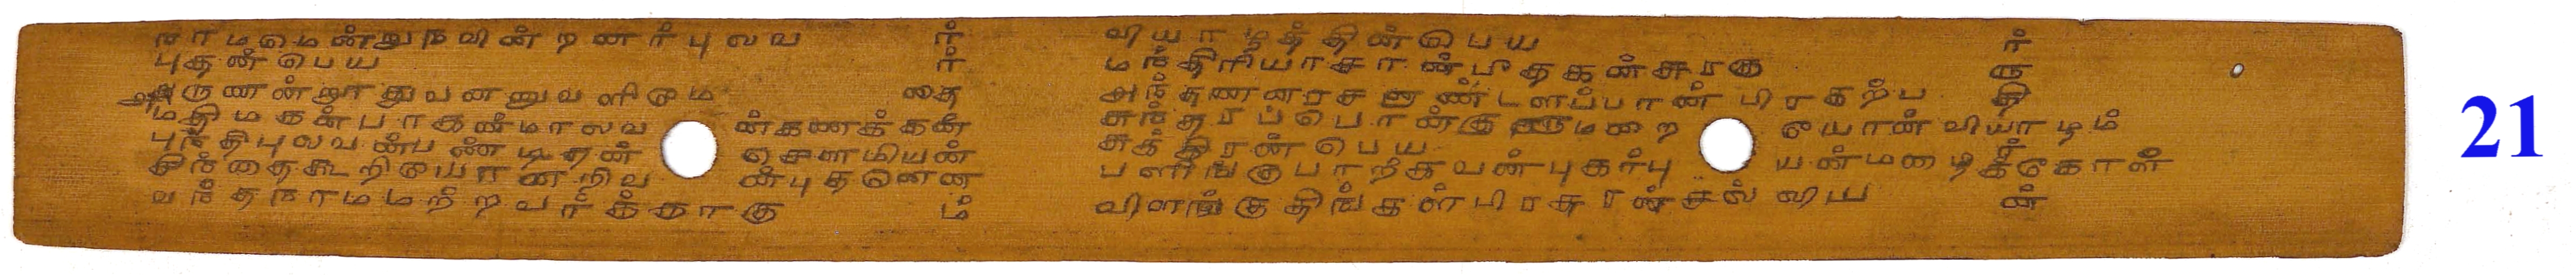 நாமமென்றுநவின்றனர்புலவ ர்
புதன்பெய ர்
அருணன்றாதுவனனுவளிமும தை
மதிமகன்பாகன்மாலவ ன்கணக்கன்
புந்திபுலவன்பண்டிதன் சௌமியன்
சிந்தைகூறியோனறிவ ன்புதனென
வந்தநாமமற்றவர்க்காகு ம்
வியாழத்தின்பெய ர்
மந்திரியாசான் கரகு ரு
அந்தணனரச ண்டளப்பான் பிரகற்ப தி
சுந்தரப்பொன்குருமறை யோன்வியாழம்
சுக்கிரன்பெய ர்
பளிங்குபார்க்கவன்புகர்பு யன்மழைக்கோள்
விளங்குதிங்கள்பிரசுரன்சல்விய ன்
21